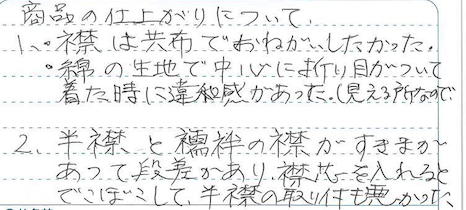 商品の仕上がりについて、
1、・襟は共布でおねがいしたかった。
・綿の生地で中心に折り目がついて
着た時に違和感があった。(見える所なので
2、半襟と襦袢の襟がすきまが
あって段差があり、襟芯を入れると
でこぼこして、半襟の取り付も悪かった、